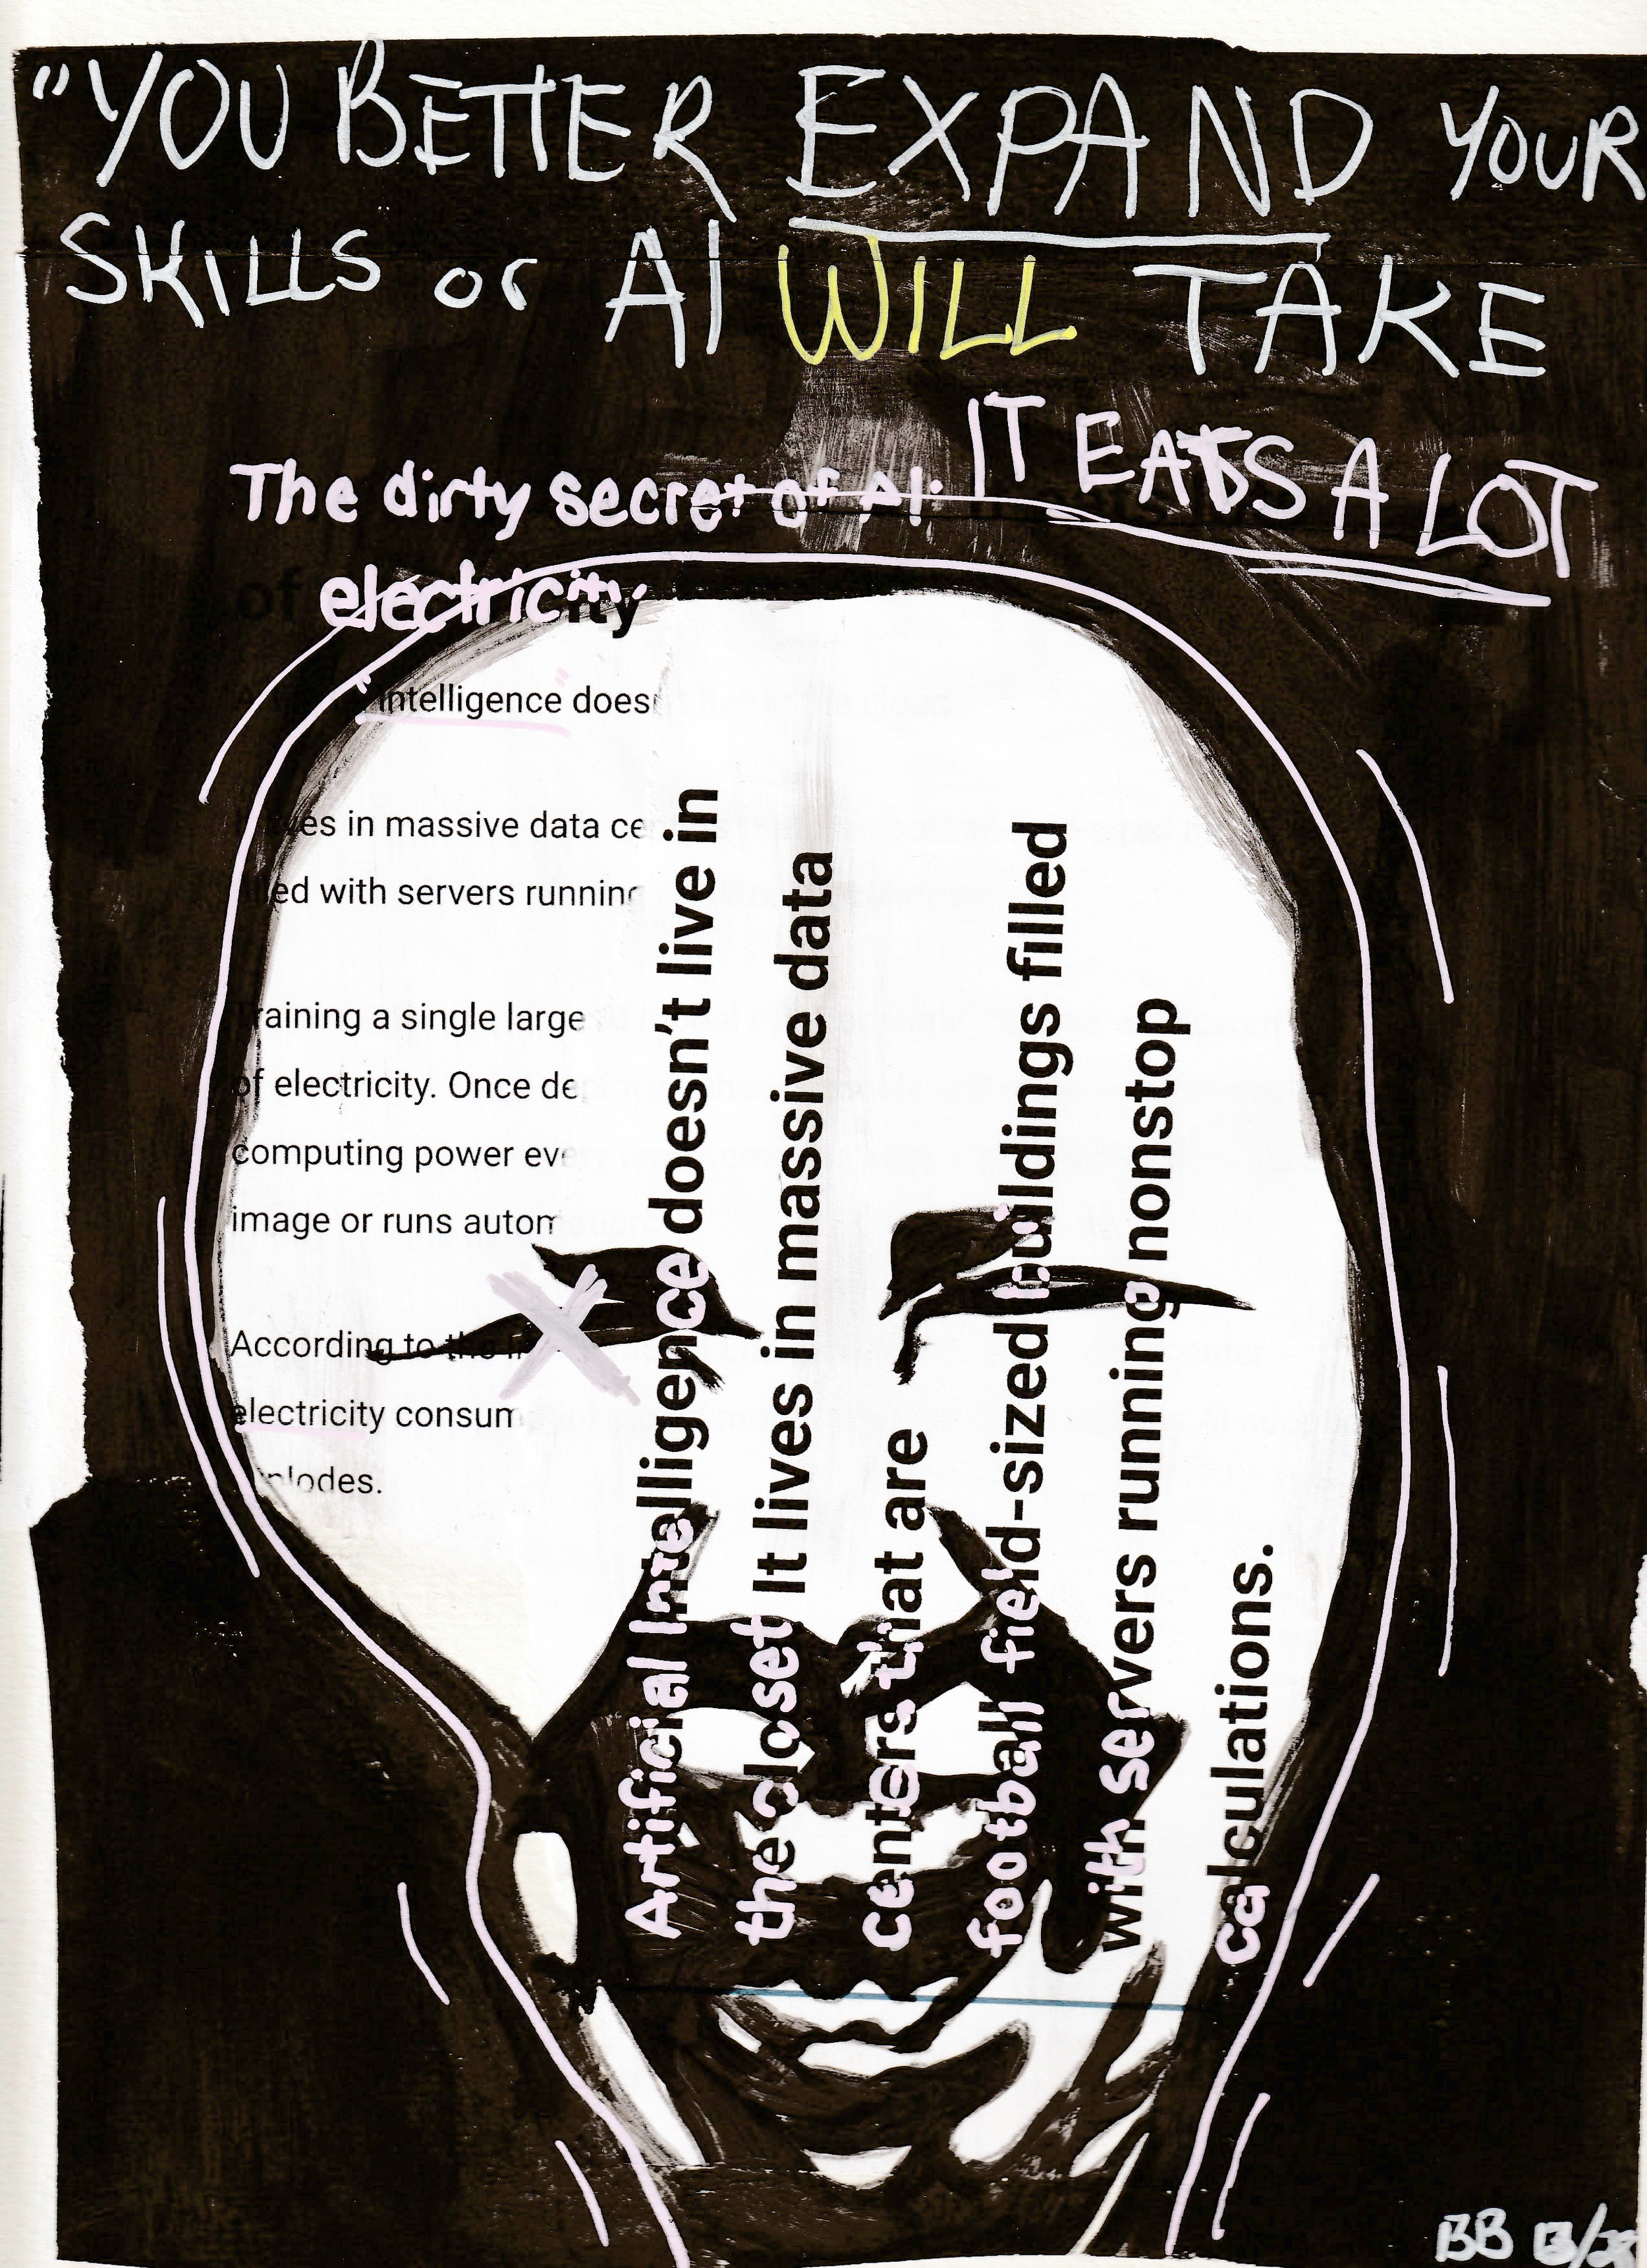 "YOU BETTER EXPAND YOUR
SKILLS or AI WILL TAKE
IT EATS A LOT
The dirty secret of AI:
of electricity
intelligence does
es in massive data ce
ed with servers running
raining a single large
of electricity. Once de
computing power eve
image or runs autom
According to the
electricity consum
plodes.
Artificial Intelligence doesn't live in
the closet It lives in massive data
centers that are
football field-sized buildings filled
with servers running nonstop
calculations.
BB